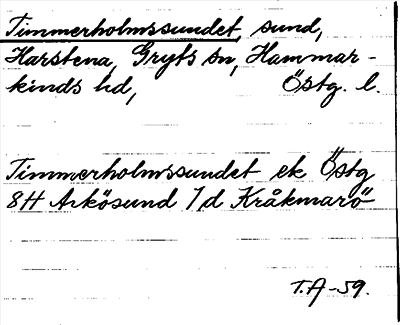 Timmerholmssundet, sund,
Harstena, Gryts sn, Hammar-
kinds hd, Östg. l.
Timmerholmssundet ek Östg
8H Arkösund 7d Kråkmarö
T.A-59.